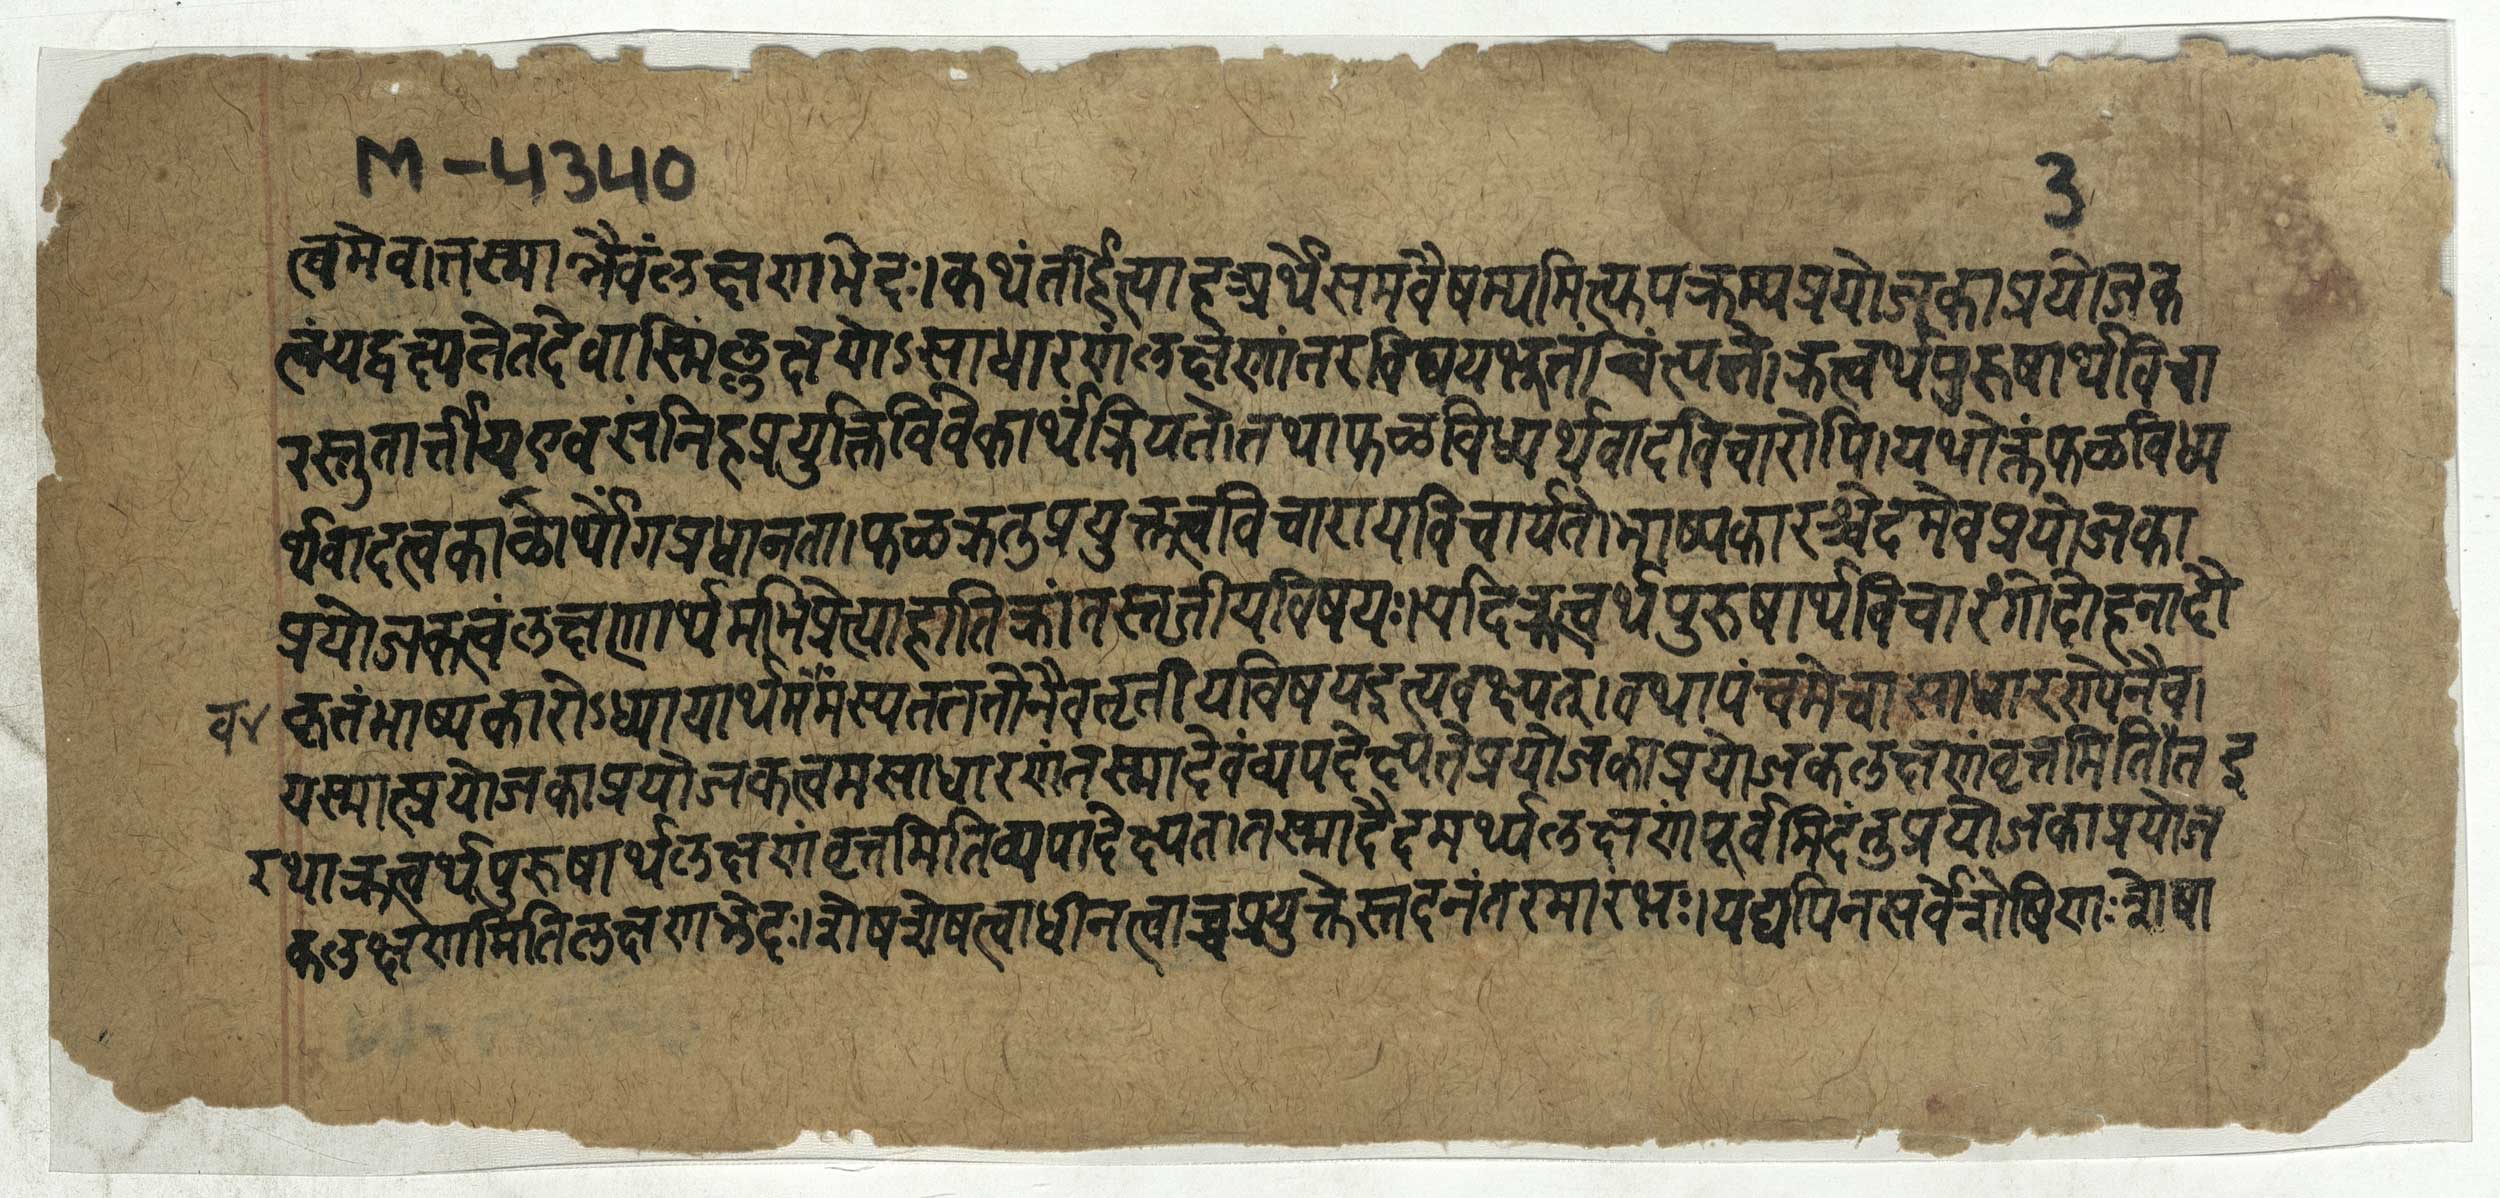 M-4340
3
त्वमेव।तस्मान्नैवंलक्षणाभेदः।कथंतर्हीत्याहश्रुत्यर्थैसमवैषम्यमित्युपक्रम्यप्रयोजकाप्रयोजक
त्वंयद्वक्ष्यतेतदेवास्मिंल्लक्षणेऽसाधारणंलक्षणांतरविषयभूतांचिंत्यते।क्रत्वर्थपुरुषार्थविचा
रस्तुतार्त्तीयएवसंनिहप्रयुक्तिविवेकार्थंक्रियते।तथाफळविध्यर्थवादविचारोपि।यथोक्तंफळविध्य
र्थवादत्वकाळार्थांगप्रधानता।फळक्रतुप्रयुक्तत्वविचारायविचार्यते।भाष्यकारश्चेदमेवप्रयोजका
प्रयोजकत्वंलक्षणार्थमभिप्रेत्याहातिक्रांतस्तृतीयविषयः।यदिक्रत्वर्थपुरुषार्थविचारंगोदोहनादौ
व४
कृतंभाष्यकारोऽध्यायार्थममंस्यतततोनैवतृतीयविषयइत्यवक्ष्यत्।तथापंचमेचासाधारणेनैव।
यस्मात्प्रयोजकाप्रयोजकत्वमसाधारणंतस्मादेवंव्यपदेक्ष्यतेप्रयोजकाप्रयोजकलक्षणंवृत्तमिति।त इ
रथाक्रत्वर्थपुरुषार्थलक्षणंवृत्तमितिव्यपादेक्ष्यत।तस्मादैदमर्थ्यलक्षणंपूर्वमिदंतुप्रयोजकाप्रयोज
कलक्षणमितिलक्षणभेदः।शेषशेषत्वाधीनत्वाच्चप्रयुक्तेस्तदनंतरमारंभः।यद्यपिनसर्वेशेषिणःशेषा